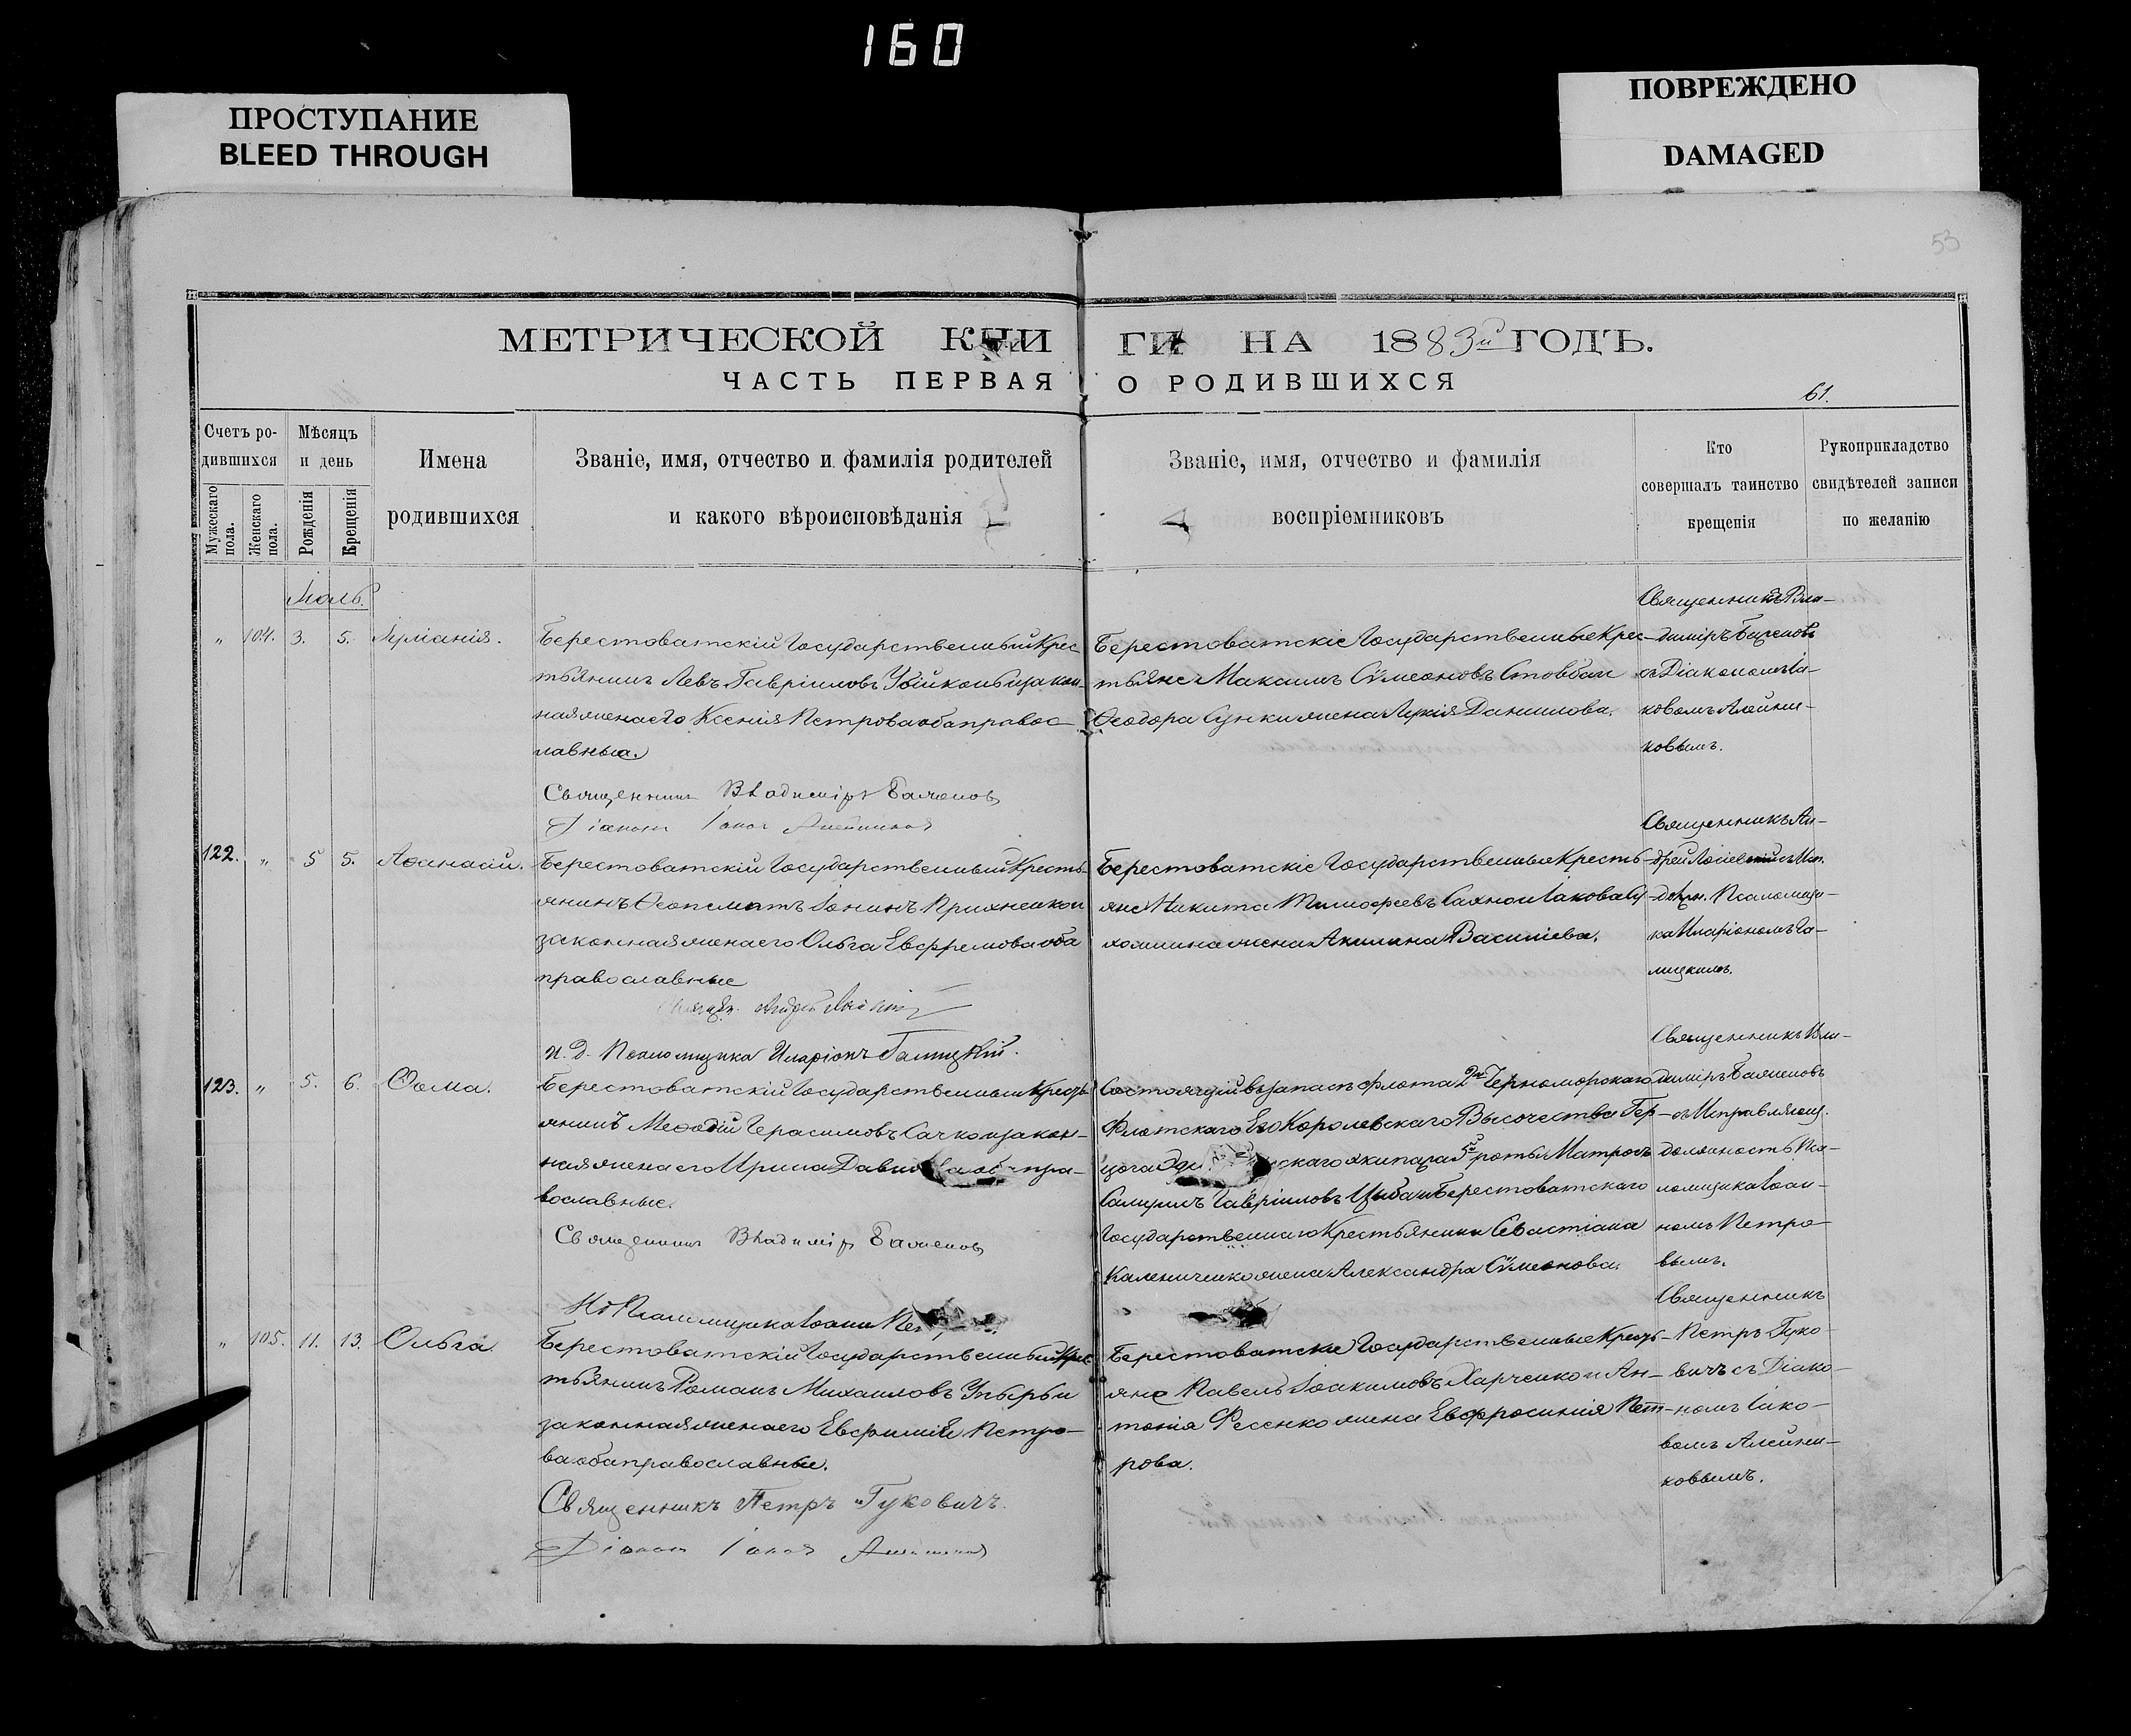 160
ПРОСТУПАНИЕ
BLEED THROUGH
ПОВРЕЖДЕНО
DAMAGED
53
МЕТРИЧЕСКОЙ КНИГИ НА 1883й ГОДЪ.
ЧАСТЬ ПЕРВАЯ О РОДИВШИХСЯ
61.
Счетъ ро-
дившихся
Мужескаго пола.
Женскаго пола.
Мѣсяцъ
и день
Рожденія
Крещенія
Имена
родившихся
Званіе, имя, отчество и фамилія родителей
и какого вѣроисповѣданія
Званіе, имя, отчество и фамилія
воспріемниковъ
Кто
совершалъ таинство
крещенія
Рукоприкладство
свидѣтелей записи
по желанію
" 104. 3. 5.
Берестоватскій Государственный Крес
тьянинъ Левъ Гавріиловъ и закон-
ная жена его Ксенія Петрова оба правос
лавные.
Священникъ Владиміръ Баженовъ
Діаконъ Іаковъ Алейниковъ
Берестоватскіе Государственные Крес-
тьяне Максимъ Сѵмеоновъ Стовбан
Ѳеодора жена Данилова.
Священникъ Вла-
диміръ Баженовъ
съ Діакономъ Іа-
ковомъ Алейни-
ковымъ.
122. " 5 5. Аѳанасій.
Берестоватскій Государственный Кресть-
янинъ Ѳеопемптъ Іонинъ и
законная жена его Ольга Евфремова оба
православные
и. д. Псаломщика Иларіонъ Галицкій.
Берестоватскіе Государственные Кресть-
яне Никита Тимоѳеевъ и Іакова
жена Акилина Василіева.
Священникъ Ан-
дрей
Псаломщи-
ка Иларіономъ Га-
лицкимъ.
123. " 5. 6. Ѳома.
Берестоватскій Государственный Кресть
янинъ Меѳодій Герасимовъ Сачко и закон-
ная жена его Ирина пра-
вославные.
Священникъ Владиміръ Баженовъ
Псаломщика Іоаннъ
Состоящій въ запасѣ флота 2го Черноморскаго
Флотскаго Его Королевскаго Высочества Гер-
цога скаго экипажа 5й роты Матросъ
Самуилъ Гавріиловъ Цыба и Берестоватскаго
Государственнаго Крестьянина Севастіана
Калениченко жена Александра Сѵмеонова.
Священникъ Вла-
диміръ Баженовъ
съ Исправляющ.
должность Пса-
ломщика Іоан-
номъ Петро-
вымъ.
" 105. 11. 13. Ольга.
Берестоватскій Государственный Крес
тьянинъ Романъ Михаиловъ и
законная жена его Евфимія Петро-
ва оба православные.
Священникъ Петръ Гуковичъ.
Діаконъ Іаковъ Алейниковъ
Берестоватскіе Государственные Кресть-
яне Павелъ Іоакимовъ Харченко и Ан-
тонія Фесенко жена Евфросинія Пет-
рова.
Священникъ
Петръ Гуко-
вичъ съ Діако-
номъ Іако-
вомъ Алейни-
ковымъ.